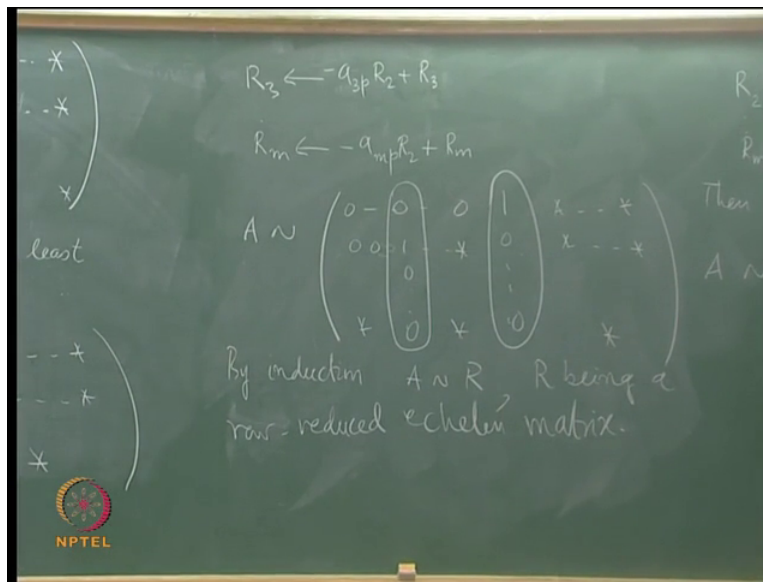 .. *
... *
*
least
-- *
---- *
*
R₃ ← -a₃ₚR₂ + R₃
Rₘ ← -aₘₚR₂ + Rₘ
A ~
0 - 0 - 0 1 * -- - *
0 0 0 1 - - * 0 * - - - *
0 : :
* 0 * 0 *
By induction A ~ R, R being a
row-reduced echelon matrix.
R₂
Rₘ
Then
A ~
NPTEL